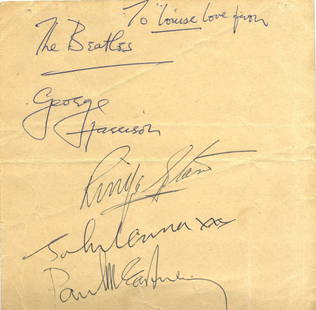 To Louise love from
The Beatles
George
Harrison
Ringo Starr
John Lennon xxx
Paul McCartney